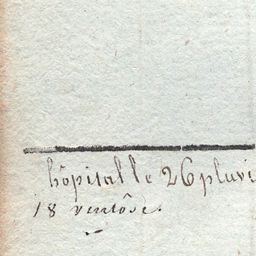 hôpital le 26 pluvi
18 ventôse.